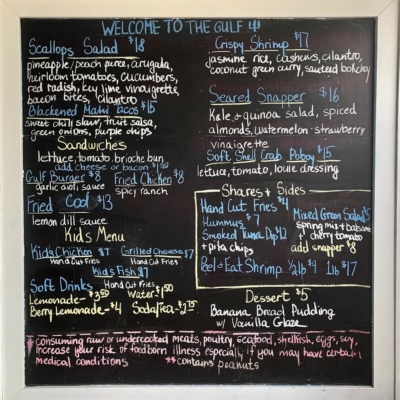 WELCOME TO THE GULF
Scallops Salad $18
pineapple/peach puree, arugala,
heirloom tomatoes, cucumbers,
red radish, key lime vinaigrette,
bacon bites, cilantro
Blackened Mahi Tacos $15
sweet chili slaw, fruit salsa,
green onions, purple chips
Sandwiches
lettuce, tomato brioche bun
add cheese or bacon
Gulf Burger $8
garlic aioli sauce
Fried Chicken $8
spicy ranch
Fried Cod $13
lemon dill sauce
Kids Menu
Kids Chicken $7
Hand Cut Fries
Grilled Cheese $7
Hand Cut Fries
Kids Fish $7
Hand Cut Fries
Soft Drinks
Water $1.50
Lemonade - $3.50
Berry Lemonade - $4
Soda/Tea - $1.75
Crispy Shrimp $17
jasmine rice, cashews, cilantro,
coconut green curry, sauteed bokchoy
Seared Snapper $16
Kale + quinoa salad, spiced
almonds, watermelon - strawberry
vinaigrette
Soft Shell Crab Poboy $15
lettuce, tomato, louie dressing
Shares + Sides
Hand Cut Fries $4
Hummus $7
Smoked Tuna Dip $12
+ pita chips
Mixed Green Salad $5
spring mix + balsamic
+ cherry tomato
add snapper $8
Peel + Eat Shrimp 1/2 lb $9 1 lb $17
Dessert $5
Banana Bread Pudding
w/ Vanilla Glaze
* consuming raw or undercooked meats, poultry, seafood, shellfish, eggs, soy,
increase your risk of foodborn illness especially if you may have certain
medical conditions ** contains peanuts